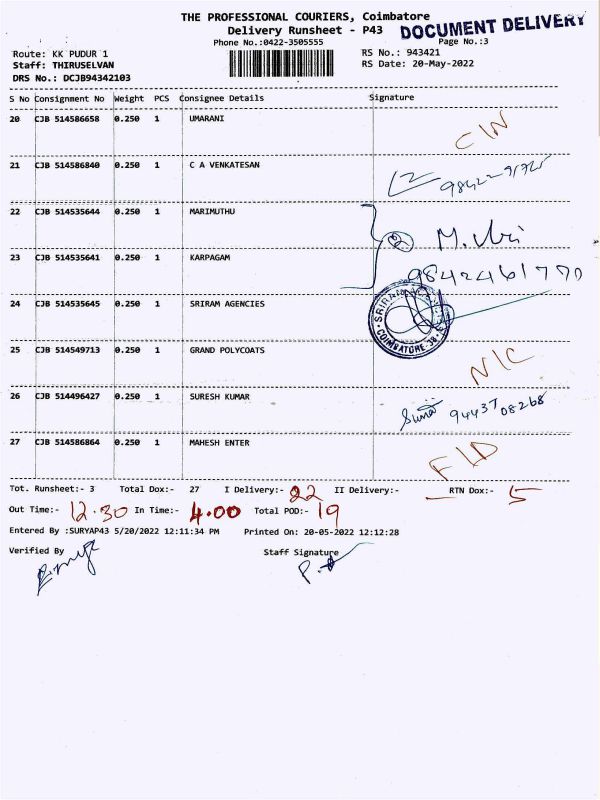 THE PROFESSIONAL COURIERS, Coimbatore
Delivery Runsheet - P43
DOCUMENT DELIVERY
Phone No.:0422-3505555
Page No.:3
Route: KK PUDUR 1
RS No.: 943421
Staff: THIRUSELVAN
RS Date: 20-May-2022
DRS No.: DCJB94342103
S No Consignment No Weight PCS Consignee Details Signature
20 CJB 514586658 0.250 1 UMARANI
21 CJB 514586840 0.250 1 C A VENKATESAN
22 CJB 514535644 0.250 1 MARIMUTHU
23 CJB 514535641 0.250 1 KARPAGAM
9842461770
24 CJB 514535645 0.250 1 SRIRAM AGENCIES
COIMBATORE-38
25 CJB 514549713 0.250 1 GRAND POLYCOATS N/C
26 CJB 514496427 0.250 1 SURESH KUMAR 94437 08268
27 CJB 514586864 0.250 1 MAHESH ENTER
Tot. Runsheet:- 3 Total Dox:- 27 I Delivery:- 22 II Delivery:- RTN Dox:- 5
Out Time:- 12.30 In Time:- 4.00 Total POD:- 19
Entered By :SURYAP43 5/20/2022 12:11:34 PM Printed On: 20-05-2022 12:12:28
Verified By Staff Signature